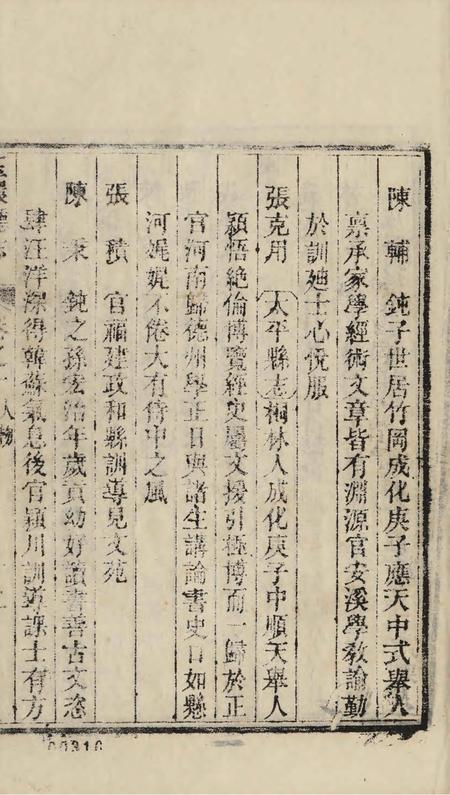 陳輔 鈍子世居竹岡成化庚子應天中式舉人
禀承家學經術文章皆有淵源官安溪學敎諭勤
於訓廸士心悅服
張克用 太平縣志桐林人成化庚子中順天舉人
穎悟絶倫博覽經史屬文援引極博而一歸於正
官河南歸德州學正日與諸生講論書史口如懸
河娓娓不倦大有侍中之風
張積 官福建政和縣訓導見文苑
陳秉 鈍之孫宏治年歲貢幼好讀書善古文恣
肆汪洋深得韓蘇氣息後官潁川訓導課士有方
人物
00310